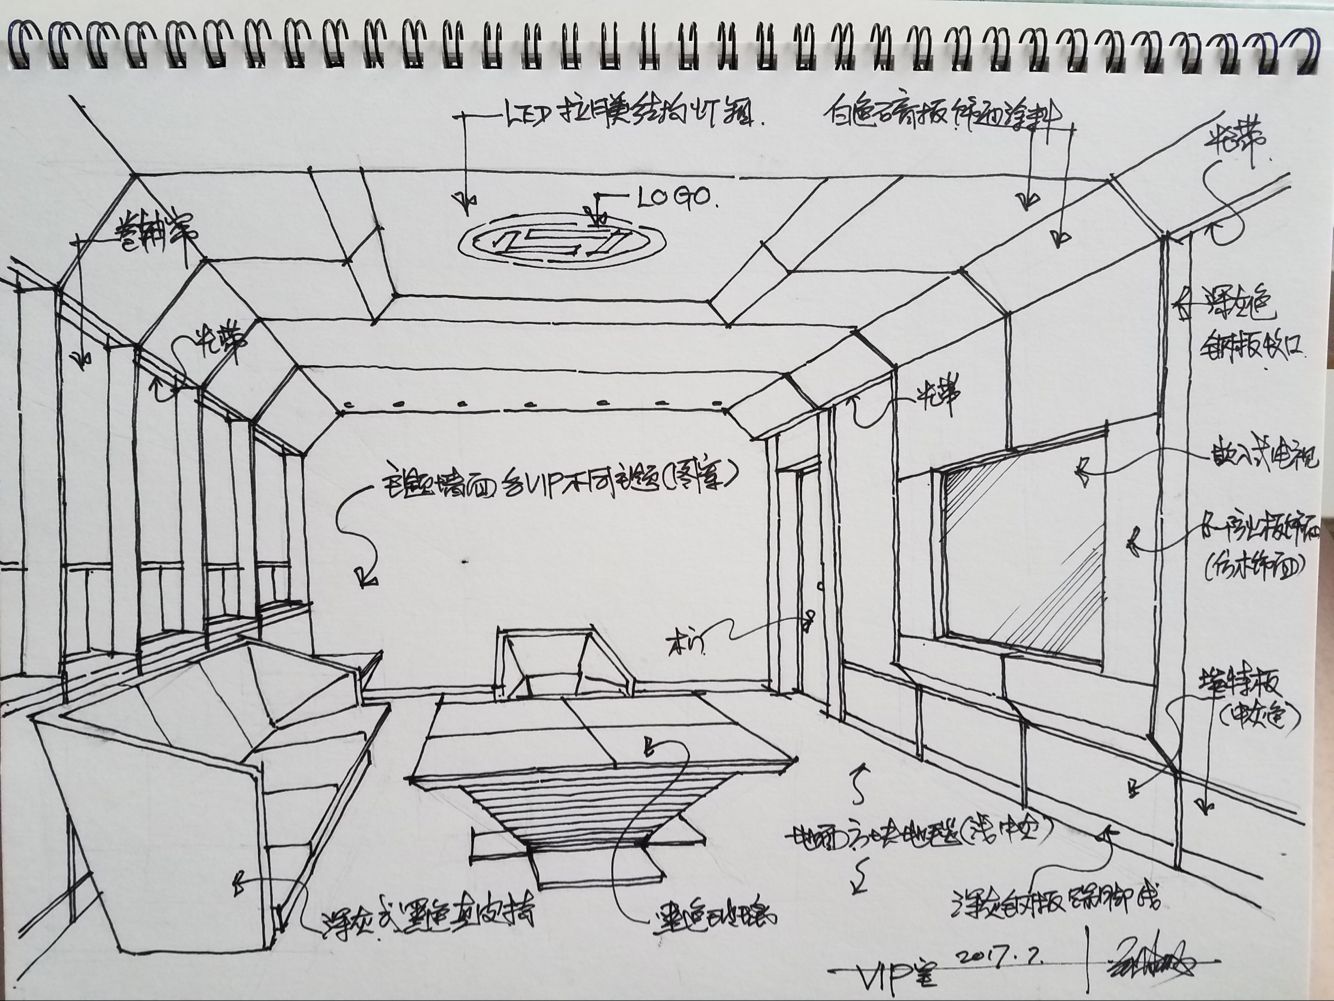 LED拉膜结构灯箱.
白色石膏板饰面涂料
光带
LOGO.
卷轴帘
光带
深灰色
钢板收口
光带
嵌入式电视
主题墙面各VIP不同主题(图案)
防火板饰面
(仿木饰面)
木门
埃特板
(中灰色)
地面方块地毯(浅中灰)
深灰式黑色真皮椅
黑色玻璃
深灰钢板踢脚线
VIP室 2017.7.